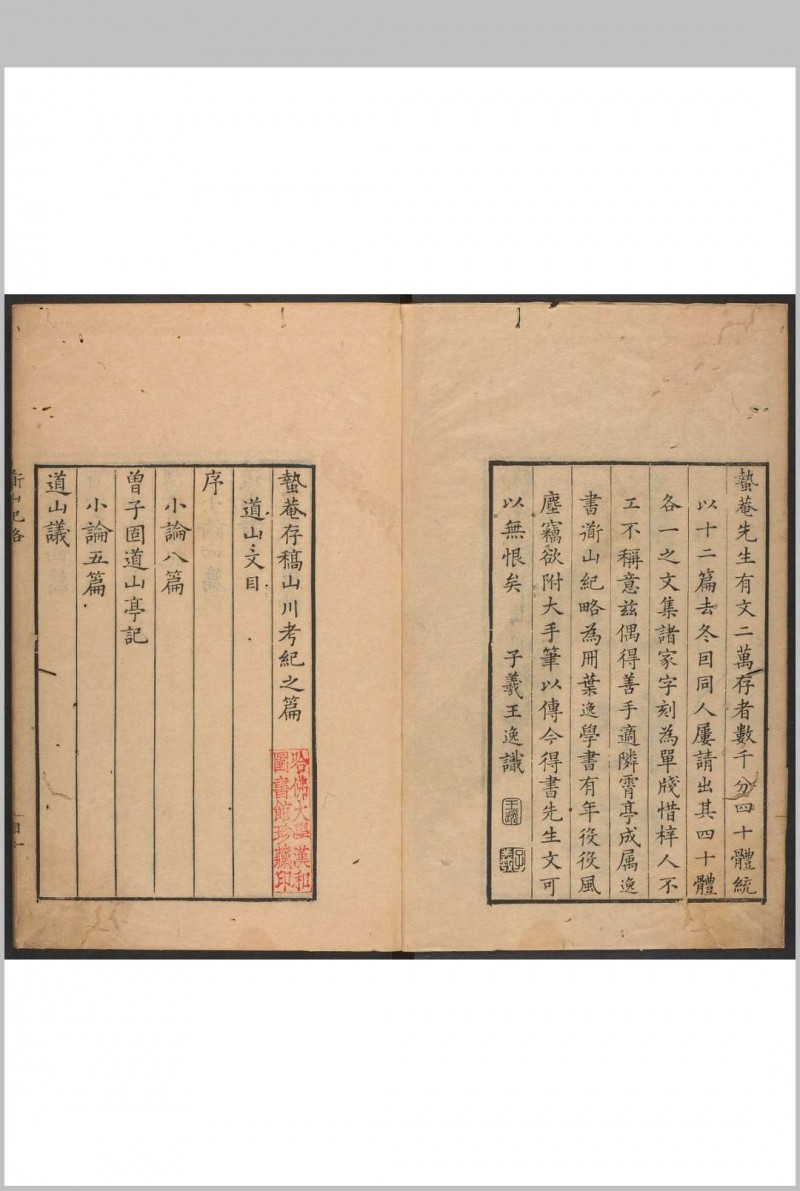 蟄菴先生有文二萬存者數千分四十體統
以十二篇去冬囙同人屢請出其四十體
各一之文集諸家字刻為單牋惜梓人不
工不稱意茲偶得善手適隣霄亭成属逸
書衟山紀略為冊葉逸學書有年役役風
塵竊欲附大手筆以傳今得書先生文可
以無恨矣 子羲王逸識
王逸
子羲
蟄菴存稿山川考紀之篇
哈佛大學漢和
圖書館珍藏印
道山文目
序
小論八篇
曾子固道山亭記
小論五篇
道山議
衟山紀略
目一